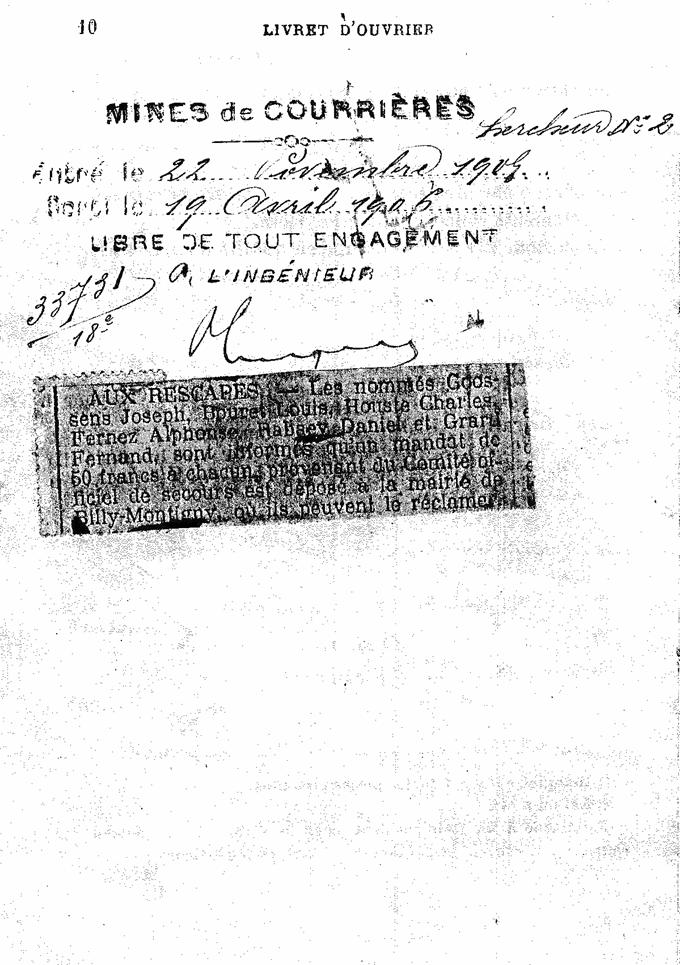 10
LIVRET D'OUVRIER
MINES de COURRIÈRES
hercheur N° 2
Entré le 22 Novembre 1905
Sorti le 19 Avril 1906
LIBRE DE TOUT ENGAGEMENT
L'INGÉNIEUR
33731
18e
AUX RESCAPES. — Les nommés Goos-
sens Joseph, Bouret Louis, Houste Charles,
Fernez Alphonse, Daniel et Grart
Fernand, sont informés qu'un mandat de
50 francs à chacun, provenant du Comité of-
ficiel de secours est déposé à la mairie de
Billy-Montigny, où ils peuvent le réclamer.